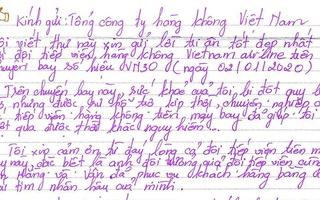 Kính gửi: Tổng công ty hàng không Việt Nam
ôi viết thư này xin gửi lời tri ân tốt đẹp nhất
đội tiếp viên hàng không Vietnam airline trên
chuyến bay số hiệu VN30 (ngày 02/01/2020)
Trên chuyến bay này, sức khoẻ của tôi bị đột quỵ
nhưng được sự hỗ trợ kịp thời, chuyên nghiệp
tiếp viên hàng không trên máy bay đã giúp tôi
qua được thời khắc nguy hiểm...
Tôi xin cảm ơn từ đáy lòng cả đội tiếp viên trên
này, đặc biệt là anh đội trưởng của đội tiếp viên cùng
Hằng và Vân đã phục vụ khách hàng bằng
tim nhân hậu của mình.